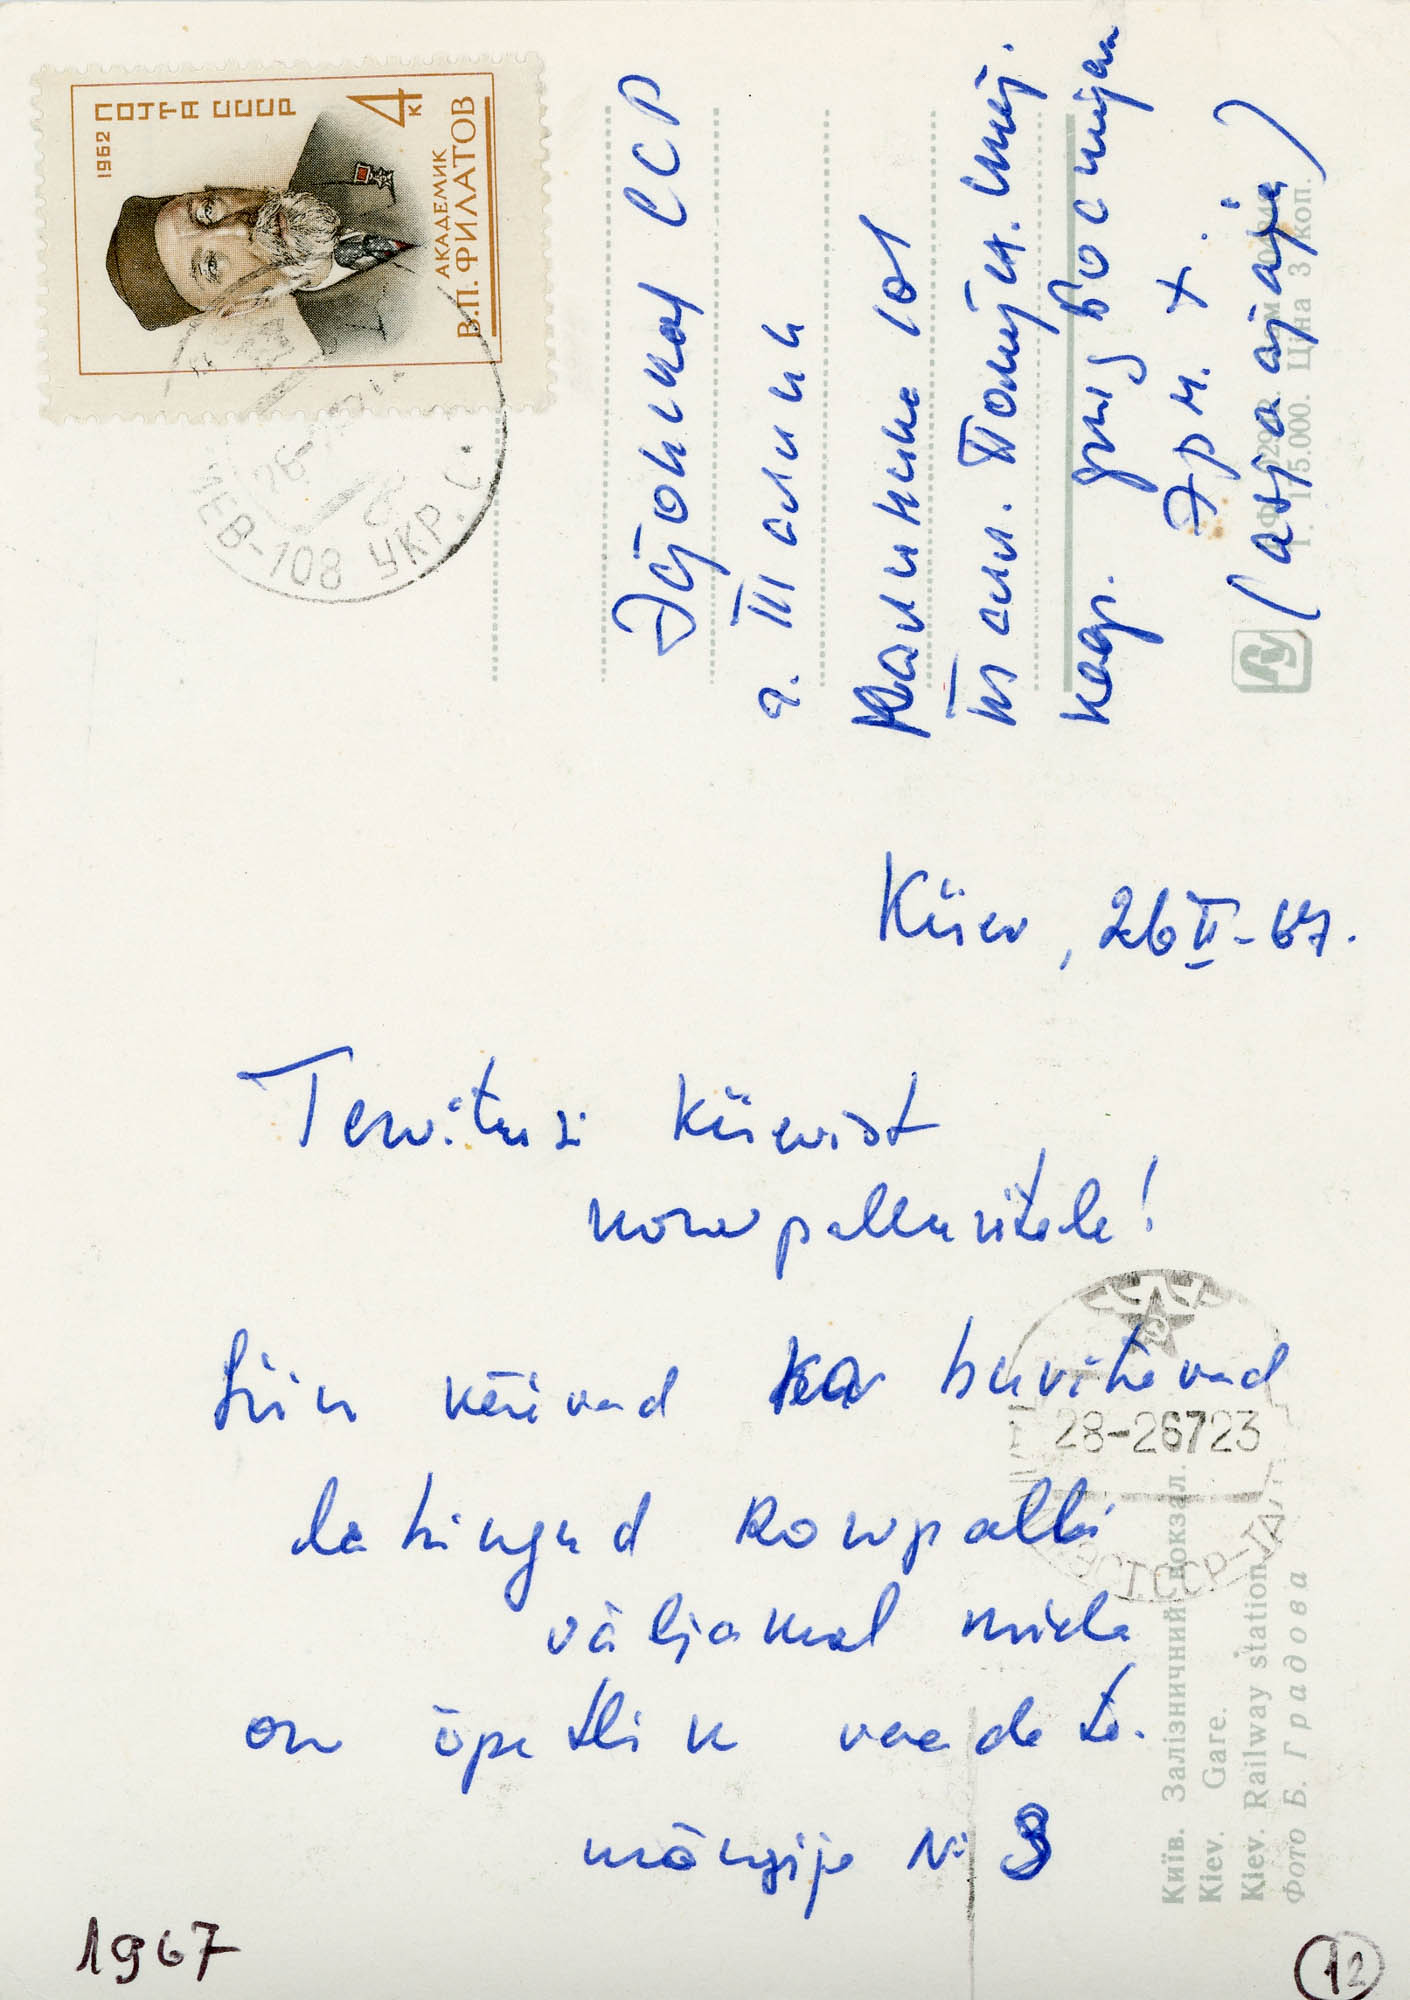 1962
ПОЧТА СССР
4 к
АКАДЕМИК
В.П. ФИЛАТОВ
ИЕВ-108 УКР. С.
Эстонская ССР
г. Таллин
Калинина 101
Талл. Политехн. Инст.
кафр. физ. воспитан
Эрм. Х.
(asja ajaja)
Ціна 3 коп.
15.000.
Kiiev, 26 II-67.
Tervitusi Kiievist
korvpalluritele!
Siin käivad ka huvitavad
lahingud korvpalli
väljakul mida
on õpetlik vaadata.
mängija № 3
28-26723
Київ. Залізничний вокзал.
Kiev. Gare.
Kiev. Railway station
Фото Б. Градова
1967
12